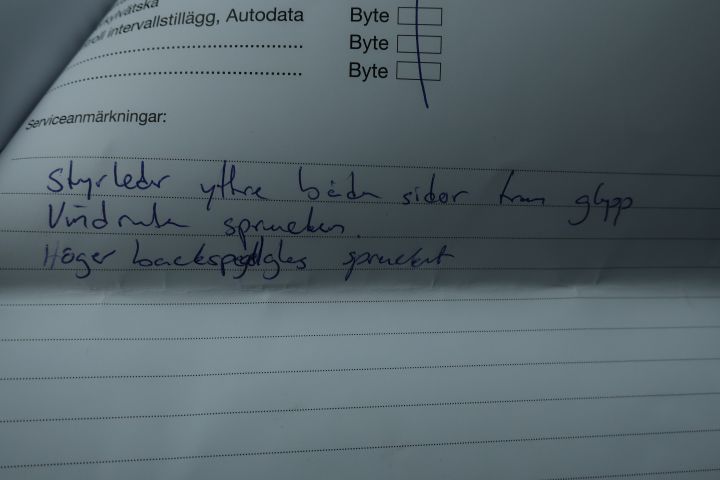 kylvätska
oll intervallstillägg, Autodata Byte
Byte
Byte
Serviceanmärkningar:
Styrleder yttre båda sidor fram glapp
Vindruta sprucken.
Höger backspegelglas sprucket